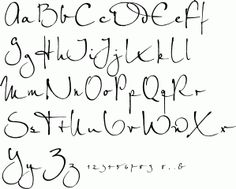 Aa Bb Cc Dd Ee Ff
Gg Hh Ii Jj Kk Ll
Mm Nn Oo Pp Qq Rr
Ss Tt Uu Vv Ww Xx
Yy Zz 123456789 &